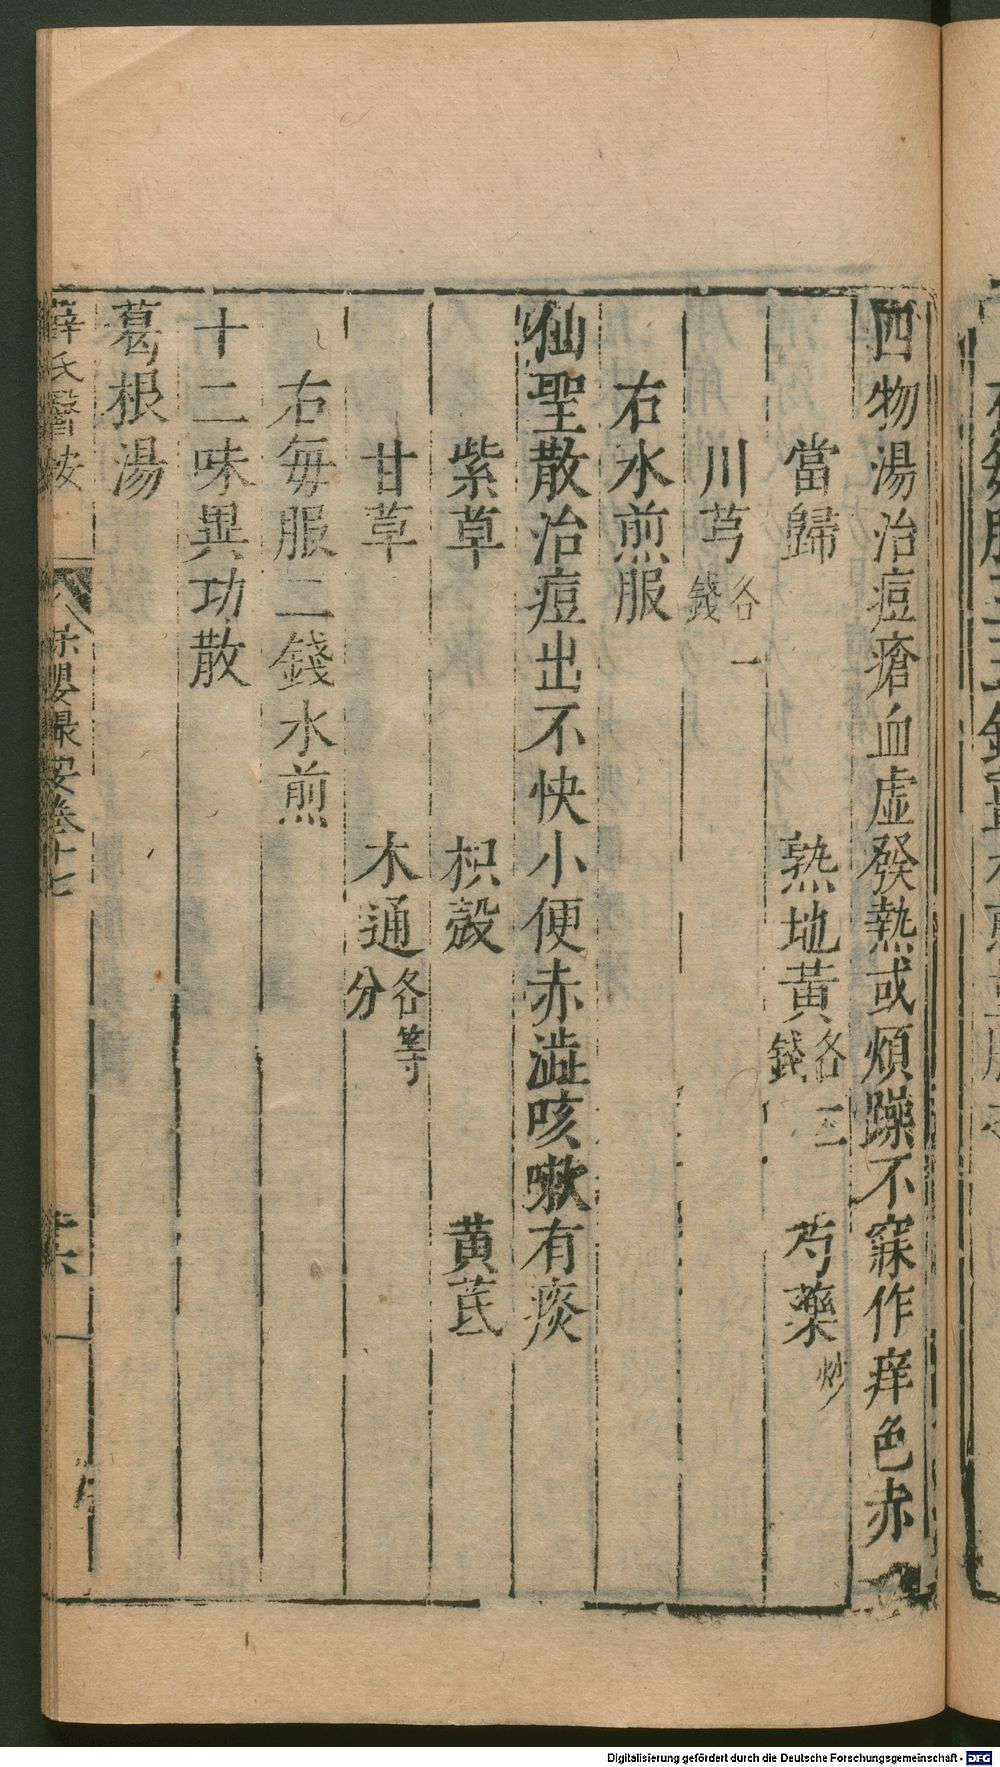 四物湯治痘瘡血虛發熱或煩躁不寐作痒色赤
當歸 熟地黃各三錢 芍藥炒
川芎各一錢
右水煎服
仙聖散治痘出不快小便赤澁咳嗽有痰
紫草 枳殼 黃芪
甘草 木通各等分
右每服二錢水煎
十二味異功散
葛根湯
薛氏醫按 保嬰撮要卷十七
Digitalisierung gefördert durch die Deutsche Forschungsgemeinschaft - DFG